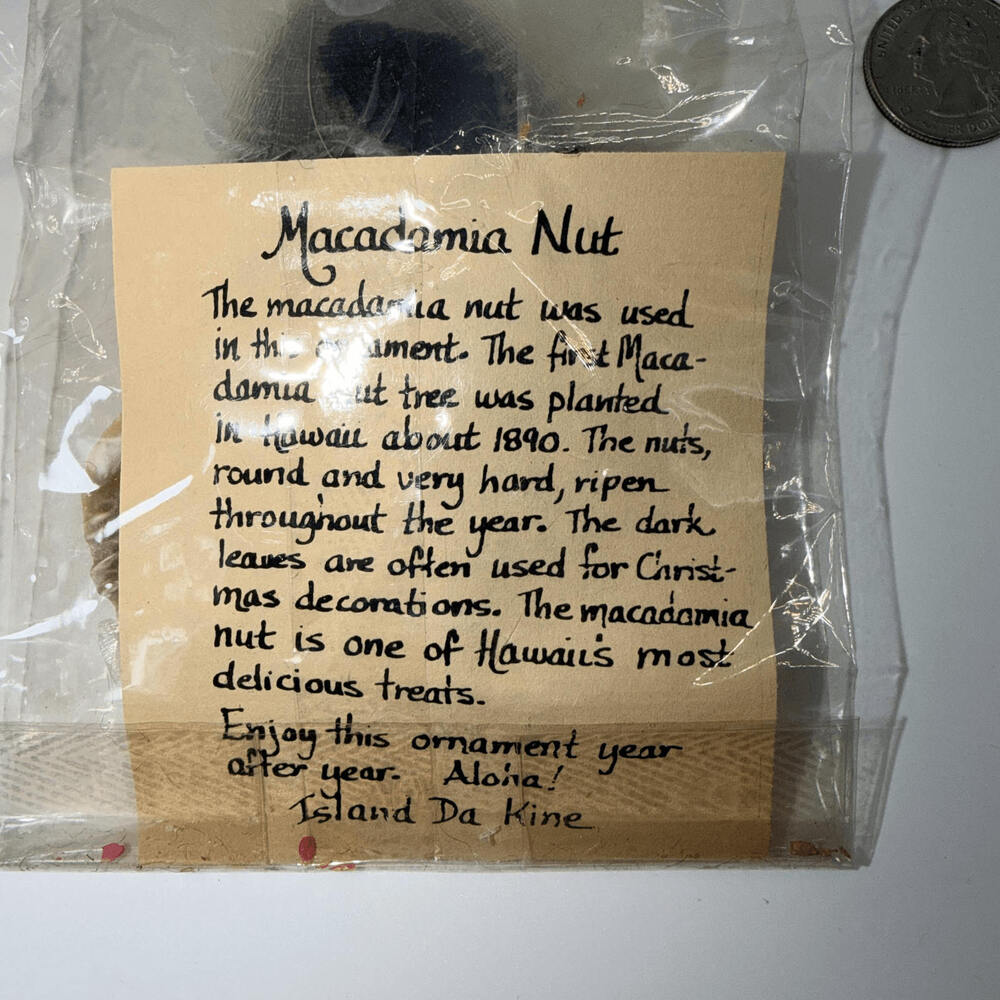 Macadamia Nut
The macadamia nut was used
in this ornament. The first Maca-
damia nut tree was planted
in Hawaii about 1890. The nuts,
round and very hard, ripen
throughout the year. The dark
leaves are often used for Christ-
mas decorations. The macadamia
nut is one of Hawaii's most
delicious treats.
Enjoy this ornament year
after year. Aloha!
Island Da Kine